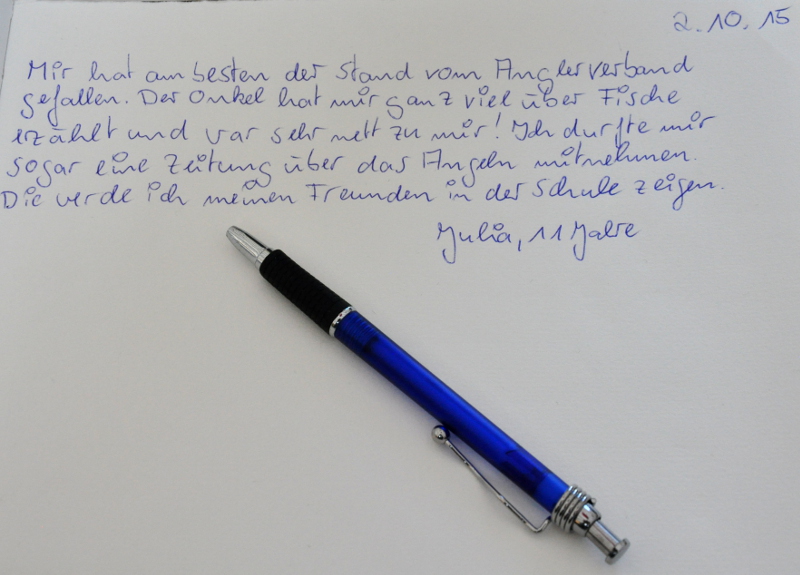 2.10.15
Mir hat am besten der Stand vom Anglerverband
gefallen. Der Onkel hat mir ganz viel über Fische
erzählt und war sehr nett zu mir! Ich durfte mir
sogar eine Zeitung über das Angeln mitnehmen.
Die werde ich meinen Freunden in der Schule zeigen.
Julia, 11 Jahre